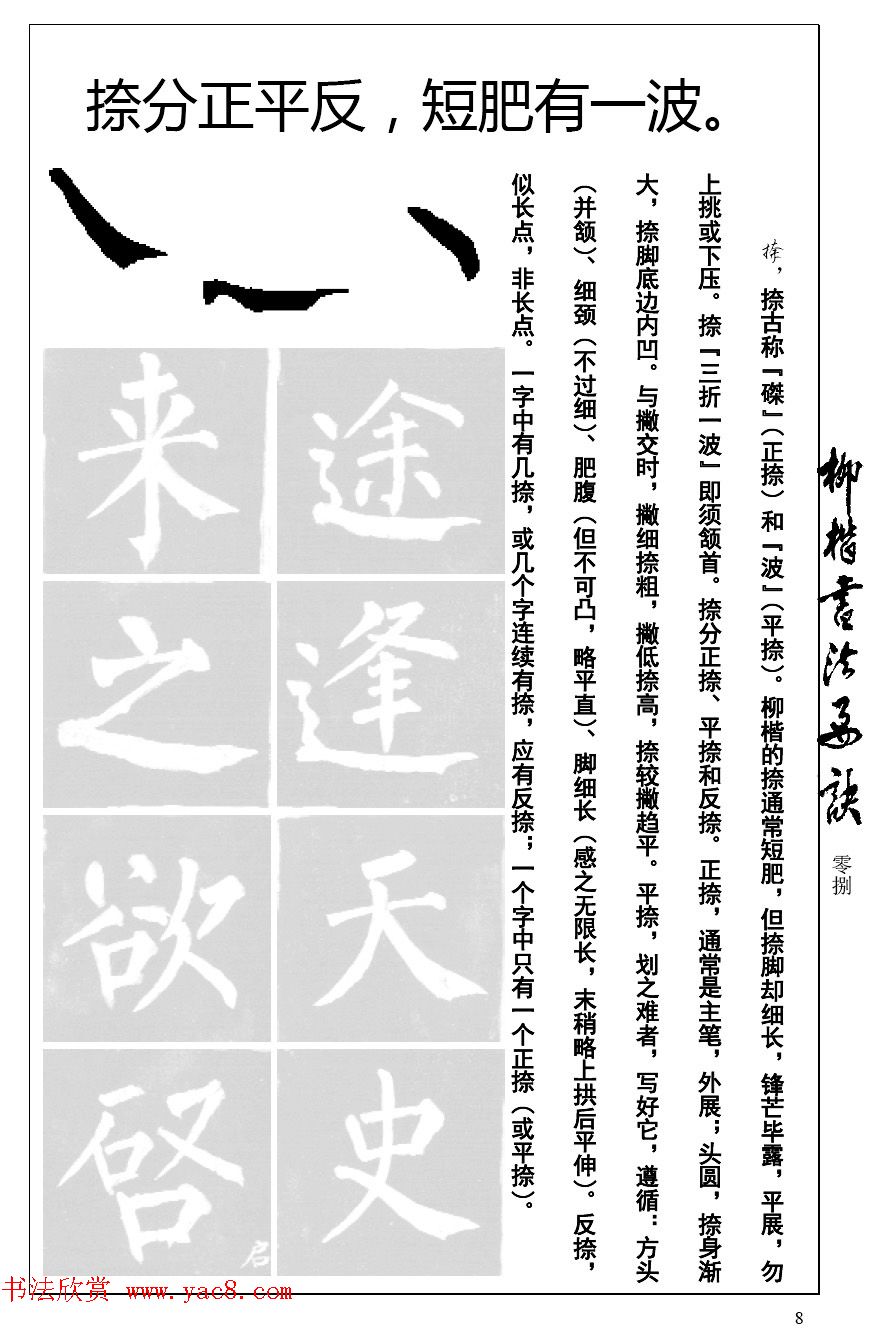 捺分正平反，短肥有一波。
捺，捺古称『磔』（正捺）和『波』（平捺）。柳楷的捺通常短肥，但捺脚却细长，锋芒毕露，平展，勿
上挑或下压。捺『三折一波』即须颔首。捺分正捺、平捺和反捺。正捺，通常是主笔，外展；头圆，捺身渐
大，捺脚底边内凹。与撇交时，撇细捺粗，撇低捺高，捺较撇趋平。平捺，划之难者，写好它，遵循：方头
（并颔）、细颈（不过细）、肥腹（但不可凸，略平直）、脚细长（感之无限长，末稍略上拱后平伸）。反捺，
似长点，非长点。一字中有几捺，或几个字连续有捺，应有反捺；一个字中只有一个正捺（或平捺）。
途
来
逢
之
天
欲
史
启
启
柳楷书法要诀
零捌
书法欣赏 www.yac8.com
8